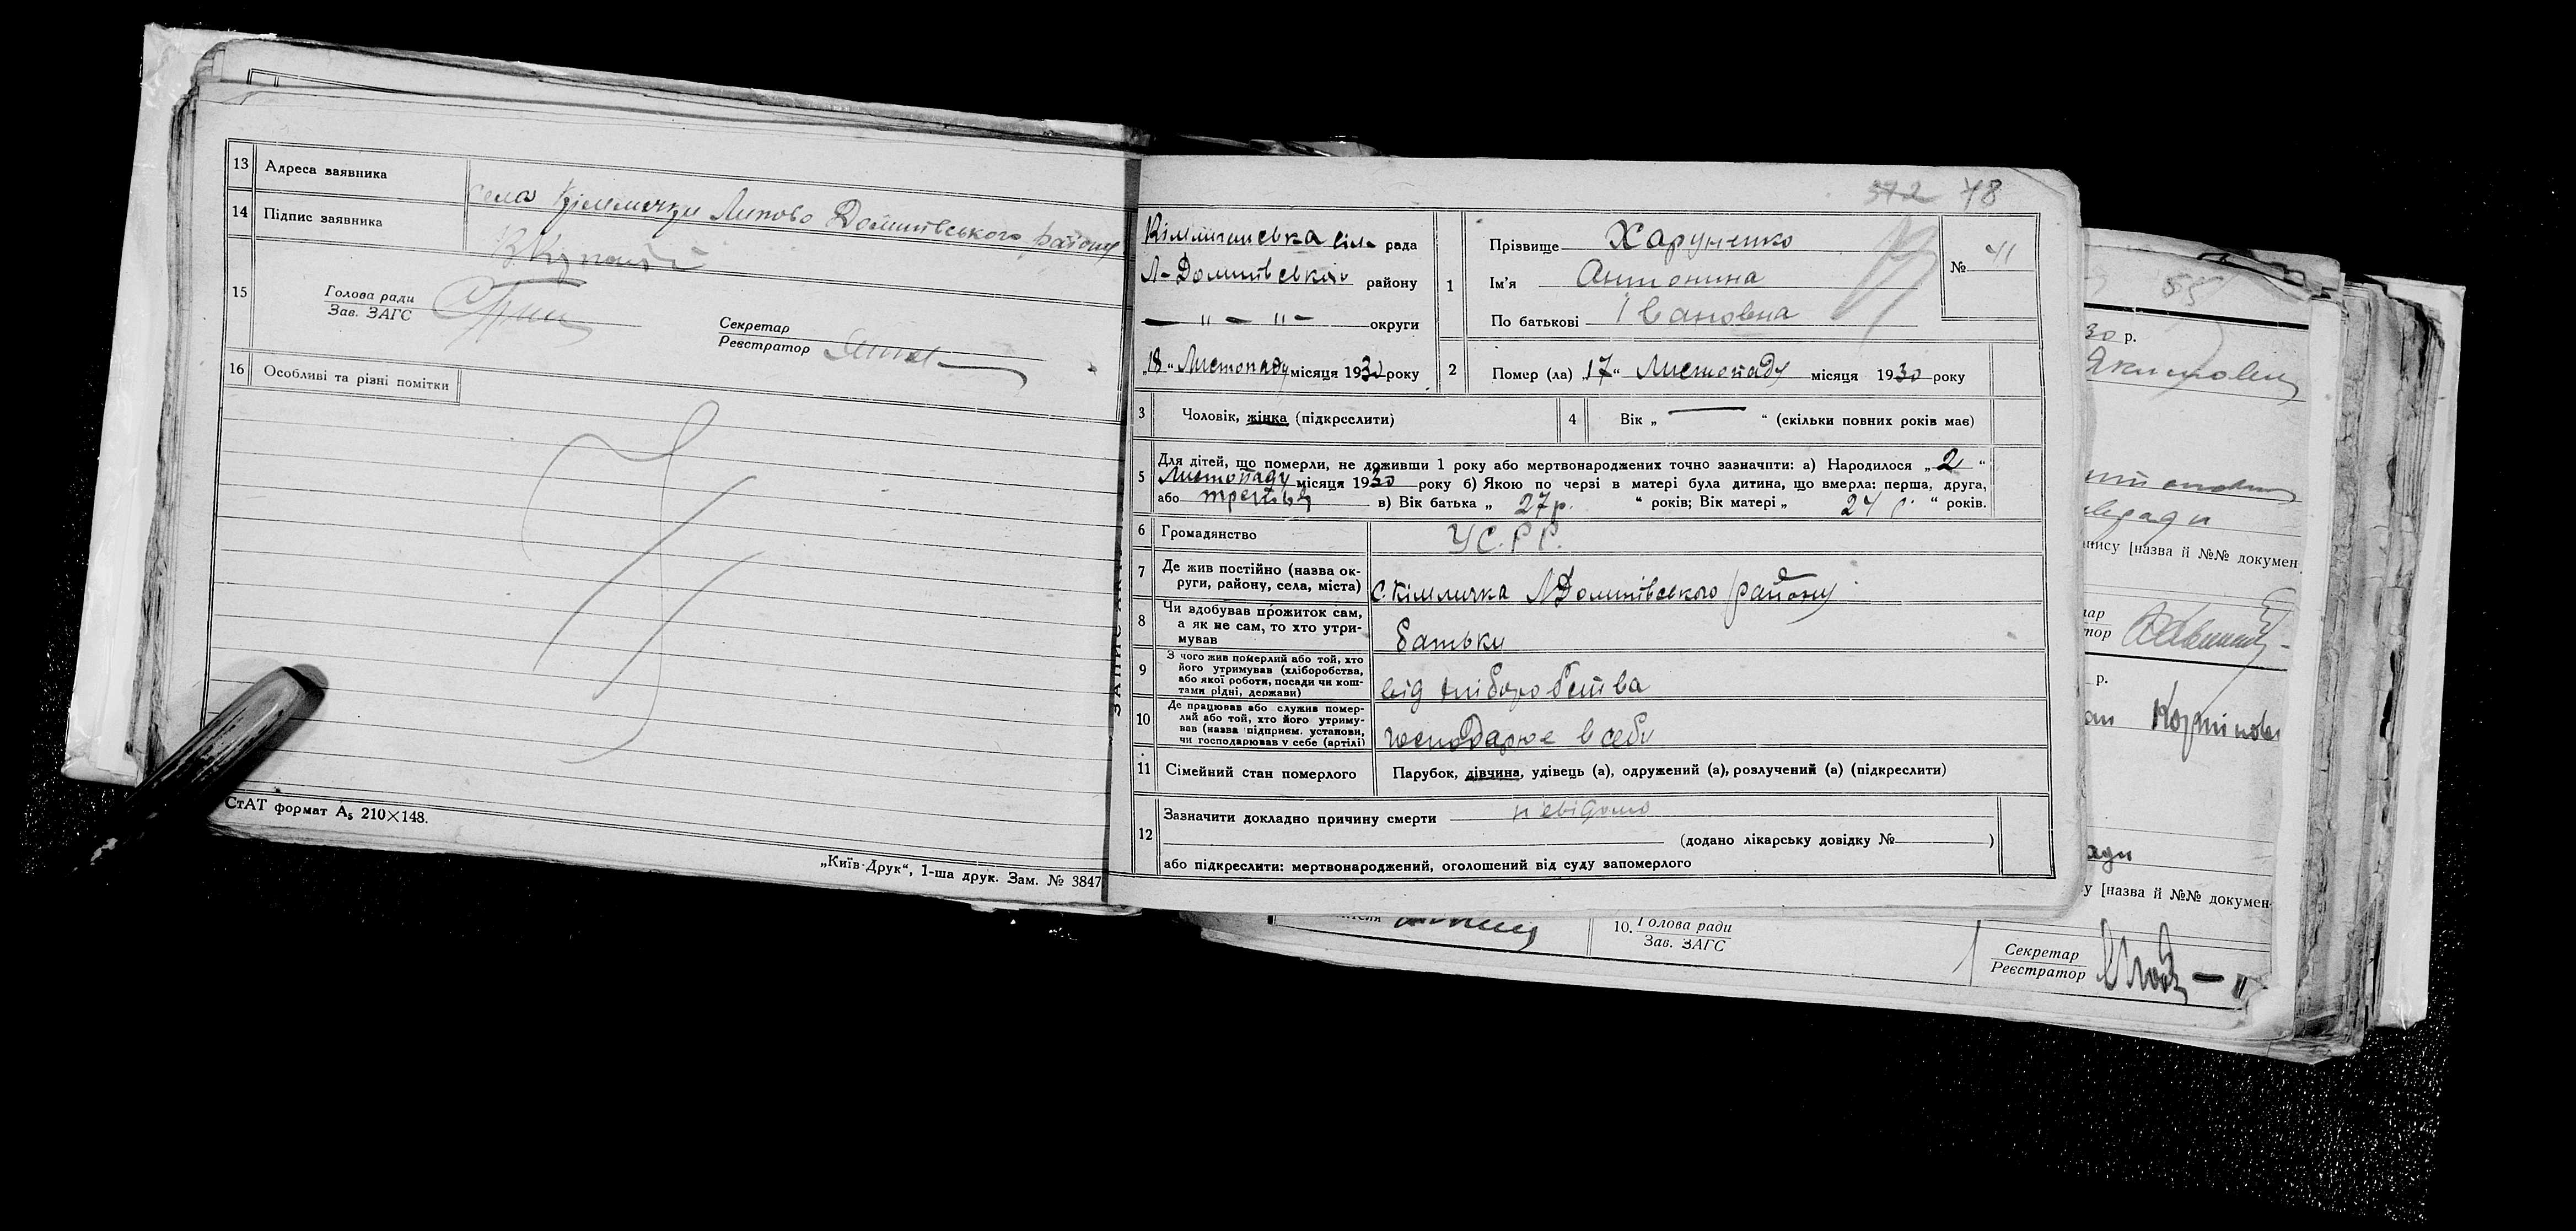 13 Адреса заявника села Кімличка Липово Долинівського району
14 Підпис заявника
15 Голова ради
Зав. ЗАГС
Секретар
Реєстратор
16 Особливі та різні помітки
СтАТ формат А5 210×148.
„Київ-Друк“, 1-ша друк. Зам. № 3847
572 78
рада
Л-Долинівського району
— " — " — округи
„18“ Листопаду місяця 1930 року
1 Прізвище Харуненко
Ім’я Антонина
По батькові Івановна
№ 41
2 Помер (ла) „17“ Листопаду місяця 1930 року
3 Чоловік, жінка (підкреслити)
4 Вік „ — “ (скільки повних років має)
5 Для дітей, що померли, не доживши 1 року або мертвонароджених точно зазначити: а) Народилося „2“
Листопаду місяця 1930 року б) Якою по черзі в матері була дитина, що вмерла: перша, друга,
або третья в) Вік батька „ 27 р. “ років; Вік матері „ 24 “ років.
6 Громадянство УСРР.
7 Де жив постійно (назва ок-
руги, району, села, міста) С Кімличка ЛДолинівського району
8 Чи здобував прожиток сам,
а як не сам, то хто утри-
мував батьки
9 З чого жив померлий або той, хто
його утримував (хліборобства,
або якої роботи, посади чи кош-
тами рідні, держави) від хліборобства
10 Де працював або служив помер-
лий або той, хто його утриму-
вав (назва підприєм. установи,
чи господарював у себе (артілі) господарює в себе
11 Сімейний стан померлого Парубок, дівчина, удівець (а), одружений (а), розлучений (а) (підкреслити)
12 Зазначити докладно причину смерти невідомо
(додано лікарську довідку № )
або підкреслити: мертвонароджений, оголошений від суду запомерлого
55
30 р.
пису [назва й №№ докумен
р.
у [назва й №№ докумен-
10. Голова ради
Зав. ЗАГС
Секретар
Реєстратор